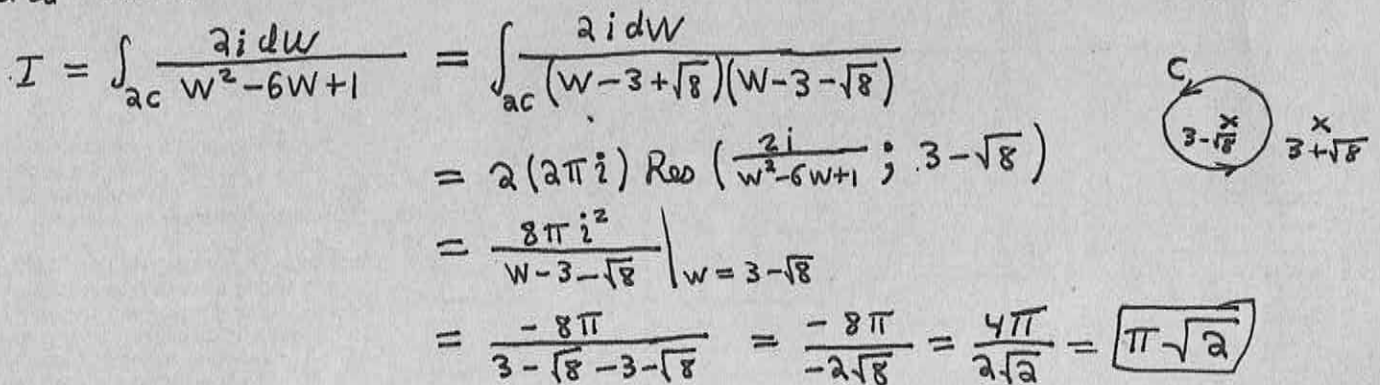 I = ∫_{2C} \frac{2i dw}{w² - 6w + 1} = ∫_{2C} \frac{2i dw}{(w - 3 + √8)(w - 3 - √8)}
C
3 - √8 × × 3 + √8
= 2(2πi) Res (\frac{2i}{w² - 6w + 1} ; 3 - √8)
= \frac{8πi²}{w - 3 - √8} |_{w = 3 - √8}
= \frac{-8π}{3 - √8 - 3 - √8} = \frac{-8π}{-2√8} = \frac{4π}{2√2} = π√2